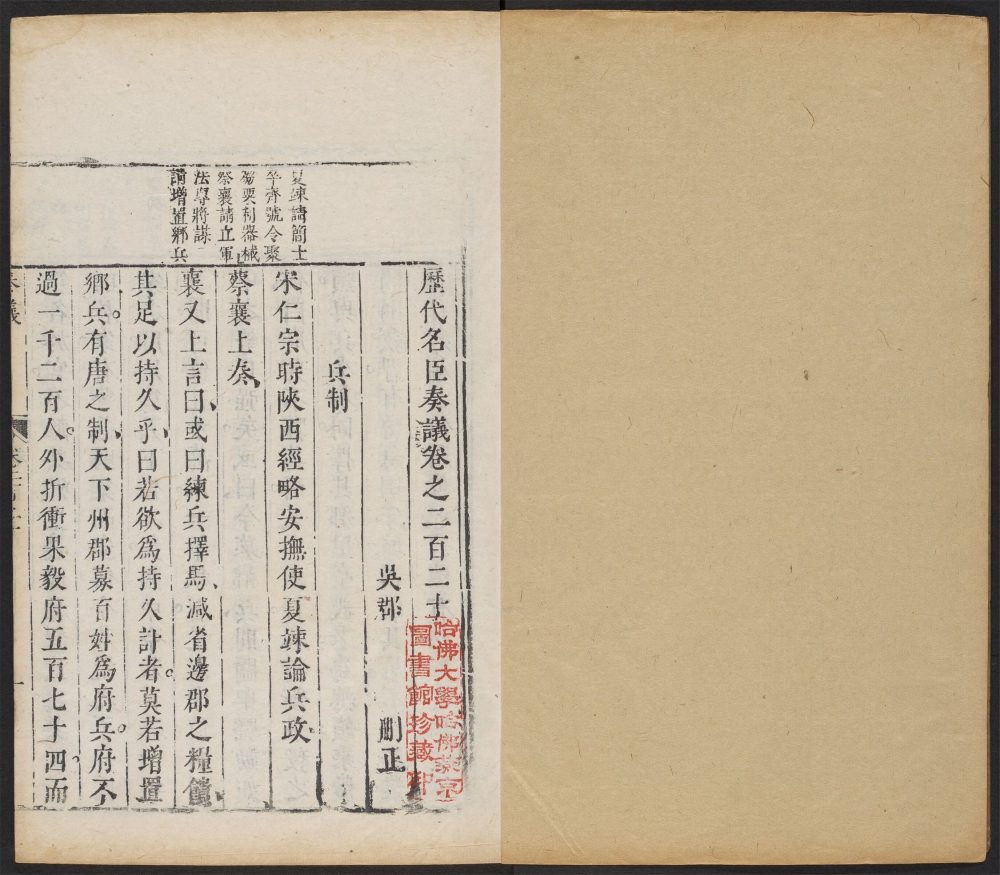 歷代名臣奏議卷之二百二十
吳郡 刪正
兵制
宋仁宗時陝西經略安撫使夏竦論兵政
蔡襄上奏
襄又上言曰或曰練兵擇馬減省邊郡之糧饋
其足以持久乎曰若欲爲持久計者莫若增置
鄉兵有唐之制天下州郡募百姓爲府兵府不
過一千二百人外折衝果毅府五百七十四而
夏竦請簡士
卒齊號令聚
芻粟利器械
蔡襄請立軍
法專將謀
請增置鄉兵
奏議
哈佛大學哈佛燕京
圖書館珍藏印